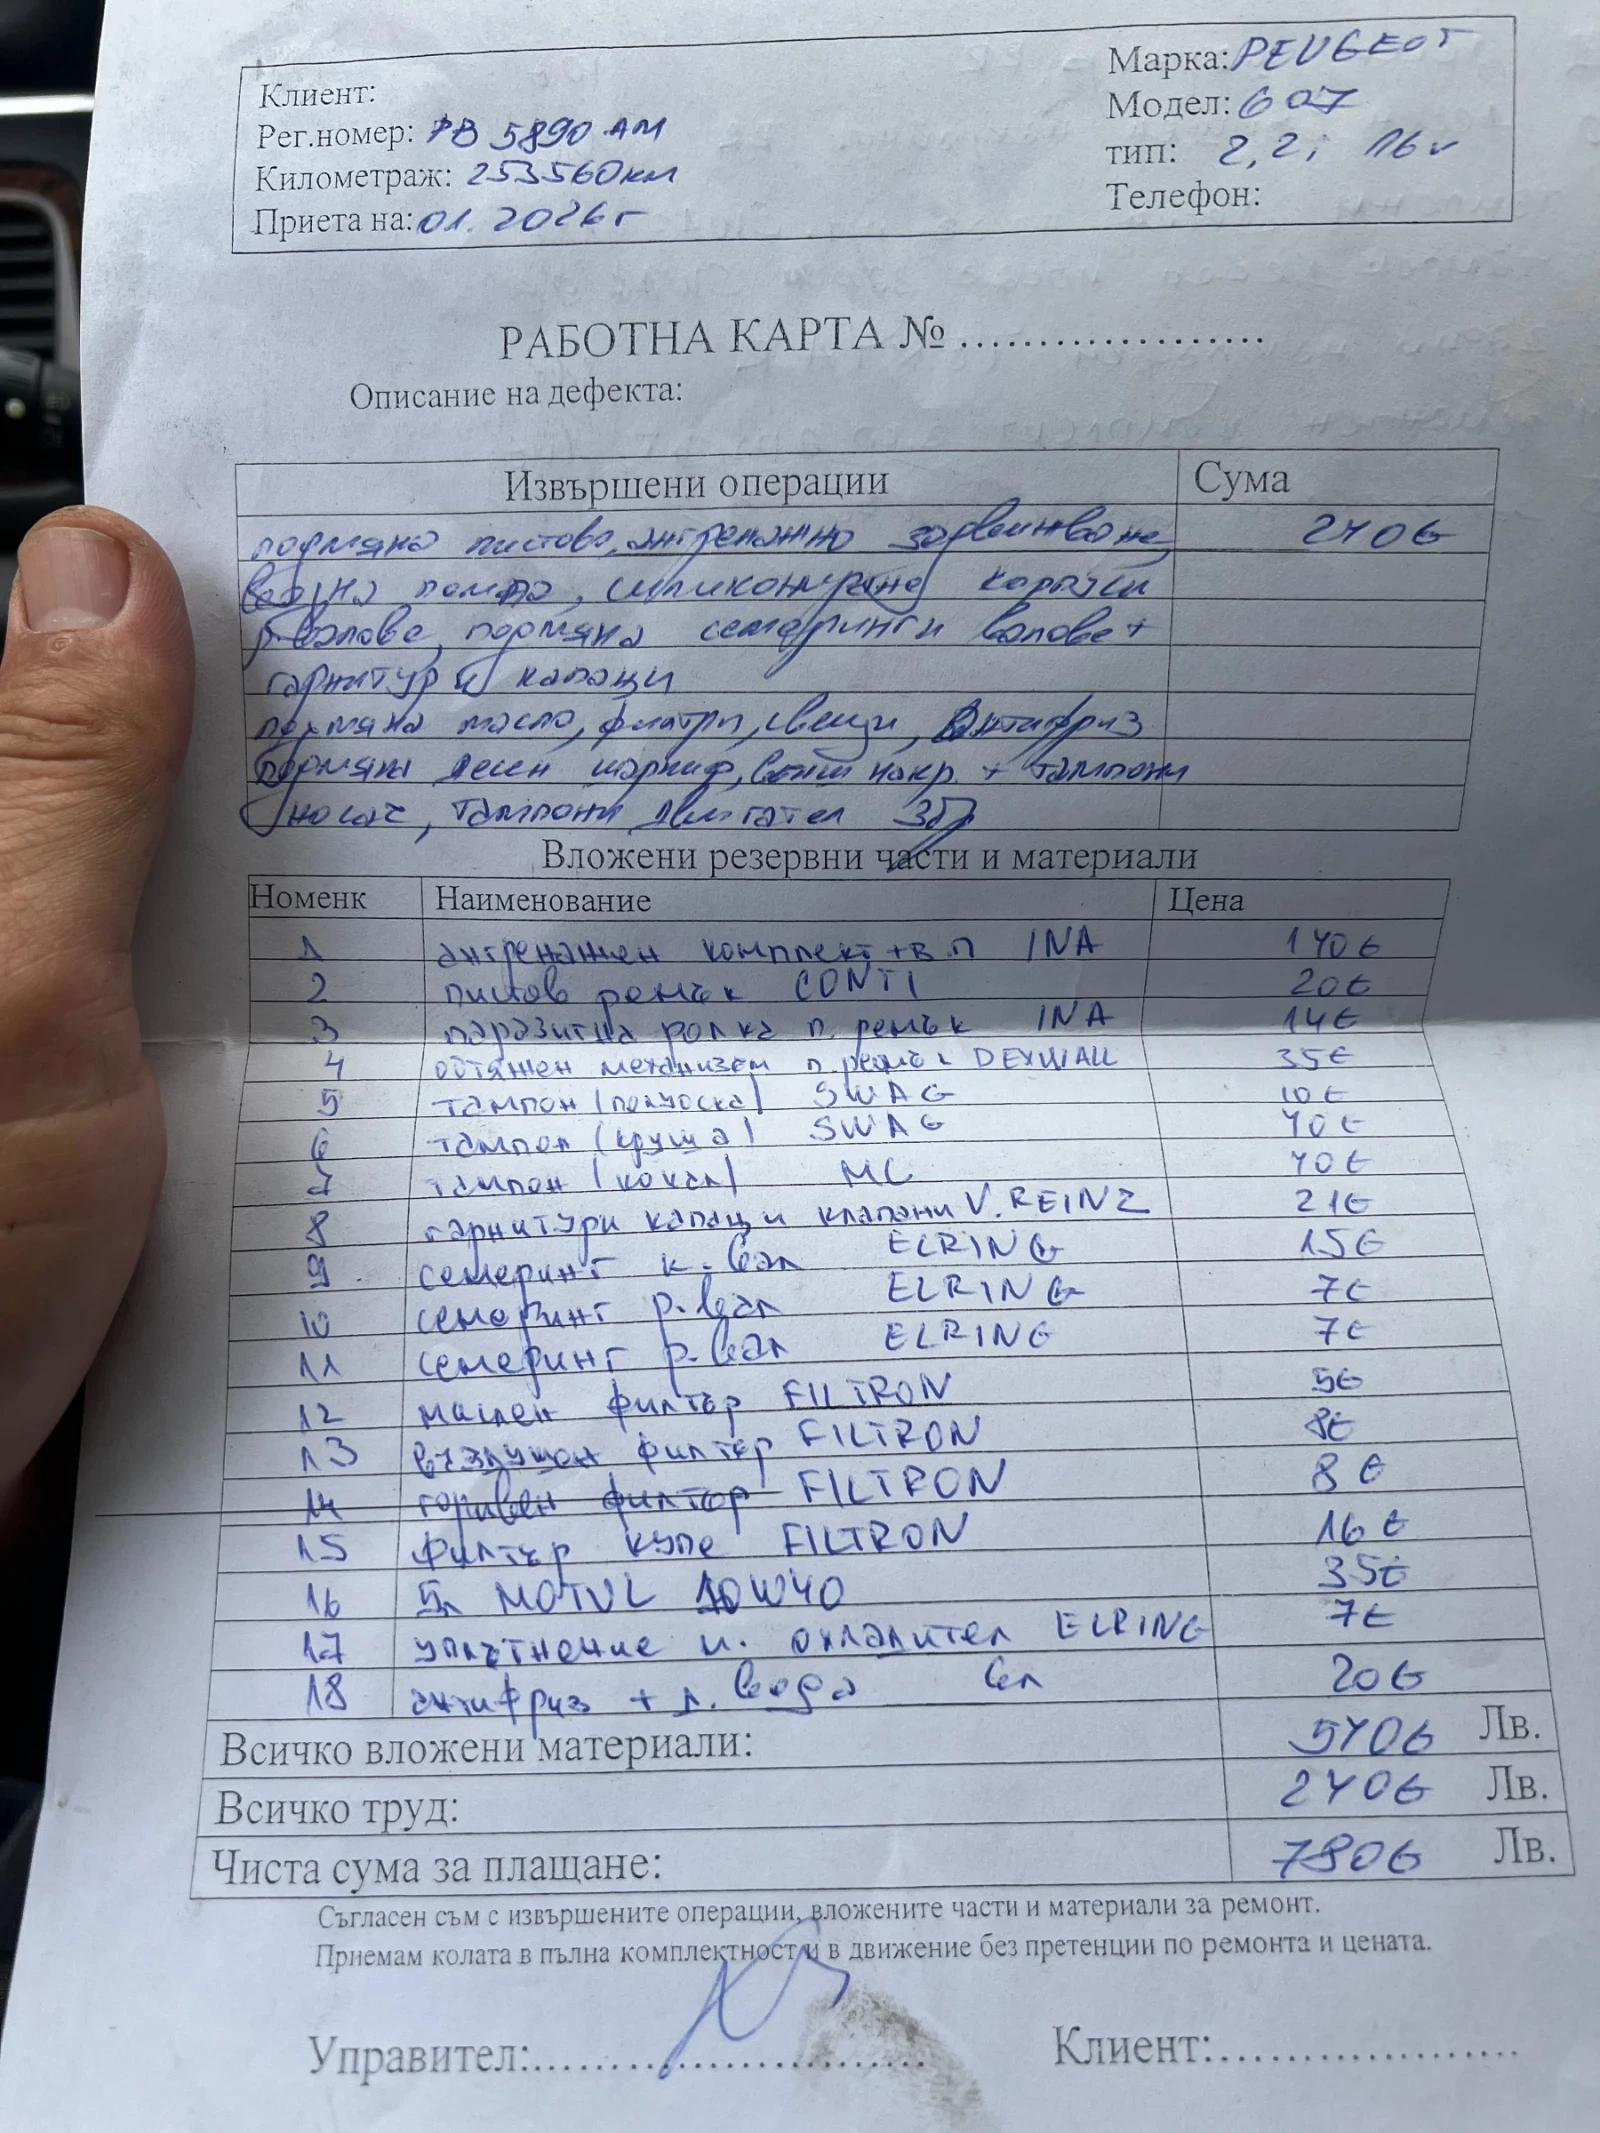 Клиент:
Рег.номер: РВ 5890 АМ
Километраж: 253560км
Приета на: 01.2026г
Марка: PEUGEOT
Модел: 607
тип: 2,2i 16v
Телефон:
РАБОТНА КАРТА № ....................
Описание на дефекта:
Извършени операции Сума
подмяна пистово, ангренажно задвижване, 240€
водна помпа, силикониране капачки
р.валове, подмяна семеринги валове +
гарнитури капаци
подмяна масло, филтри, свещи, антифриз
подмяна десен шарнир, накр. + тампони
носач, тампони двигател 3бр
Вложени резервни части и материали
Номенк Наименование Цена
1 ангренажен комплект + в.п INA 140€
2 пистов ремък CONTI 20€
3 паразитна ролка п. ремък INA 14€
4 обтяжен механизъм п. ремък DEXWALL 35€
5 тампон (полуоска) SWAG 10€
6 тампон (круша) SWAG 40€
7 тампон (кокал) MC 40€
8 гарнитури капаци клапани V. REINZ 21€
9 семеринг к. вал ELRING 15€
10 семеринг р. вал ELRING 7€
11 семеринг р. вал ELRING 7€
12 маслен филтър FILTRON 5€
13 въздушен филтър FILTRON 8€
14 горивен филтър FILTRON 8€
15 филтър купе FILTRON 16€
16 5л MOTUL 10W40 35€
17 уплътнение м. охладител ELRING 7€
18 антифриз + д. вода 6л 20€
Всичко вложени материали: 540€ Лв.
Всичко труд: 240€ Лв.
Чиста сума за плащане: 780€ Лв.
Съгласен съм с извършените операции, вложените части и материали за ремонт.
Приемам колата в пълна комплектност и в движение без претенции по ремонта и цената.
Управител:......................... Клиент:....................